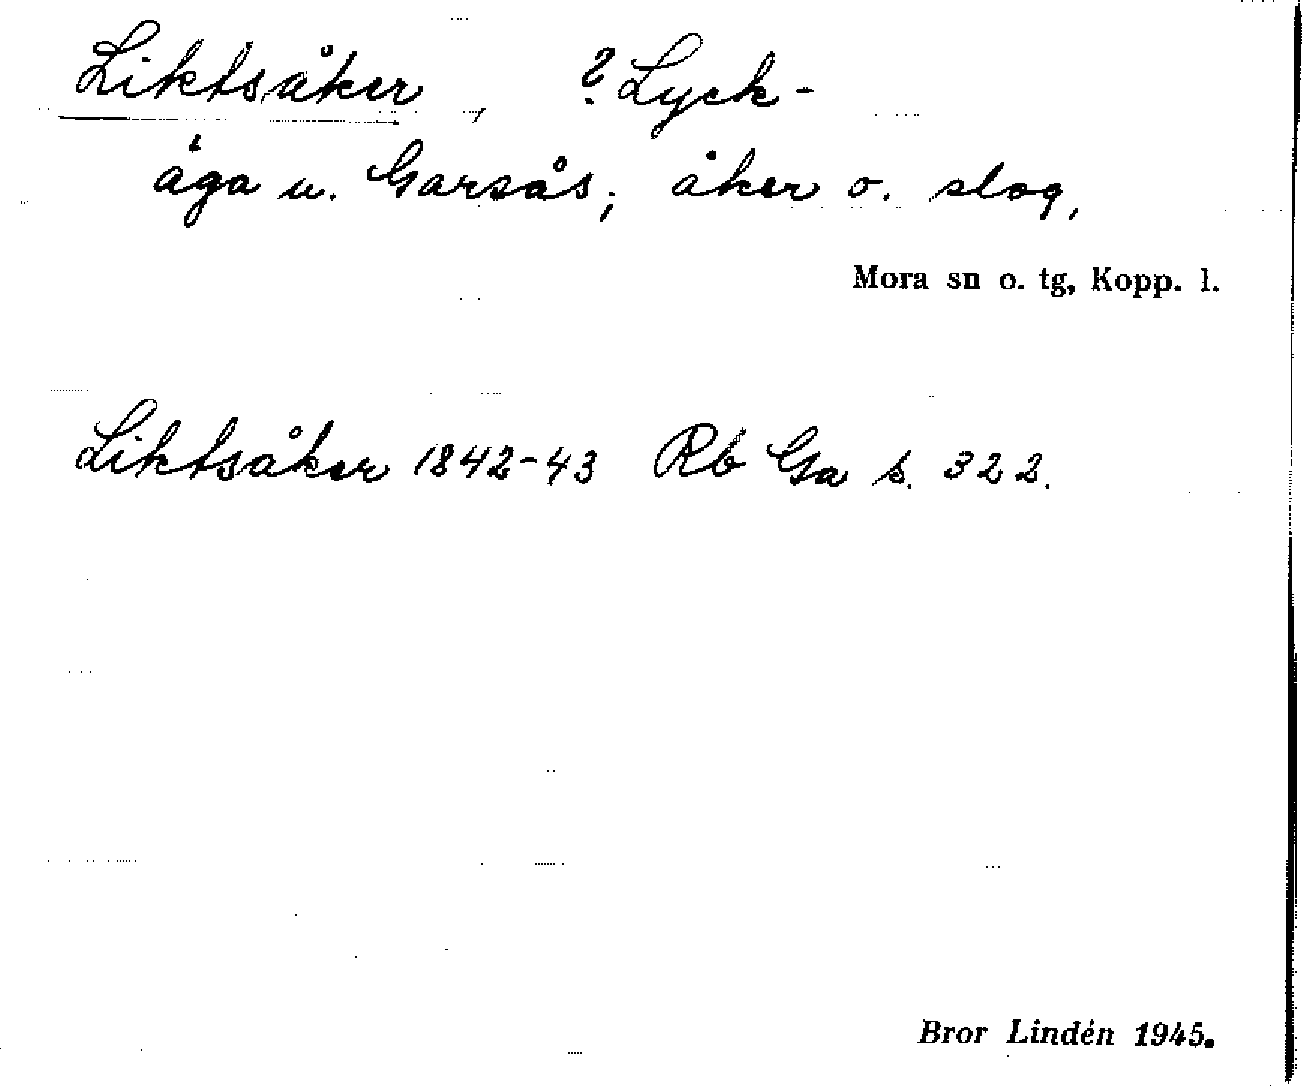 Liktsåker, ? Lyck-
åga u. Garsås; åker o. slog,
Mora sn o. tg, Kopp. l.
Liktsåker 1842-43 Rb Ga s. 322.
Bror Lindén 1945.